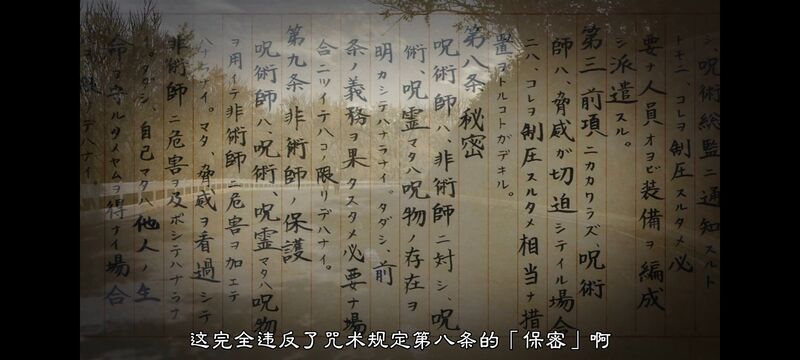 シ、呪術総監ニ通知スルト
トモニ、コレヲ制圧スルタメ必
要ナ人員オヨビ装備ヲ編成
シ派遣スル。
第三 前項ニカカワラズ、呪術
師ハ、脅威ガ切迫シテイル場合
ニハ、コレヲ制圧スルタメ相当ナ措
置ヲトルコトガデキル。
第八条 秘密
呪術師ハ、非術師ニ対シ、呪
術、呪霊マタハ呪物ノ存在ヲ
明カシテハナラナイ。タダシ、前
条ノ義務ヲ果タスタメ必要ナ場
合ニツイテハコノ限リデハナイ。
第九条 非術師ノ保護
呪術師ハ、呪術、呪霊マタハ呪物
ヲ用イテ非術師ニ危害ヲ加エテ
ハナラナイ。マタ、脅威ヲ看過シテ
非術師ニ危害ヲ及ボシテハナラナ
。タダシ、自己マタハ他人ノ生
命ヲ守ルタメヤムヲ得ナイ場合
デハナイ。
这完全违反了咒术规定第八条的「保密」啊